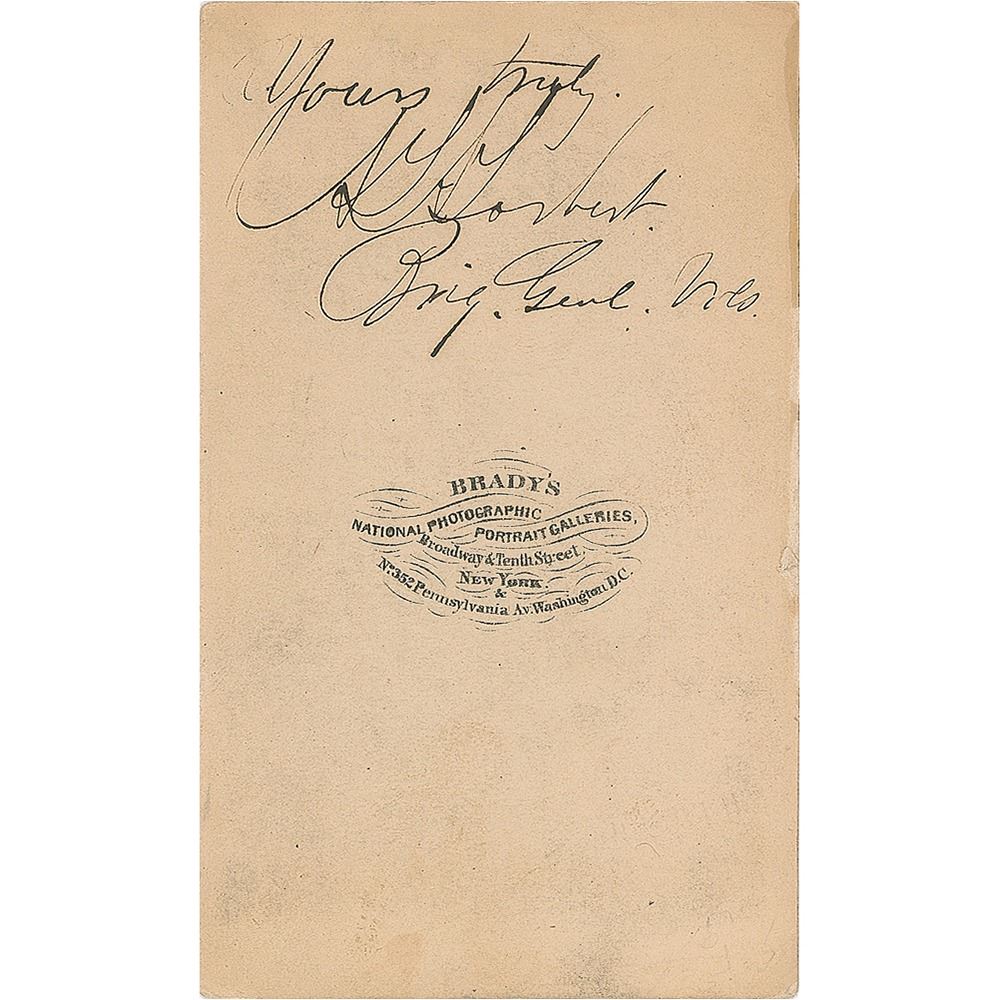 Yours truly.
A T A Torbert.
Brig. Genl. Vols.
BRADY'S
NATIONAL PHOTOGRAPHIC
PORTRAIT GALLERIES,
Broadway & Tenth Street,
NEW YORK.
&
No. 352 Pennsylvania Av. Washington D.C.